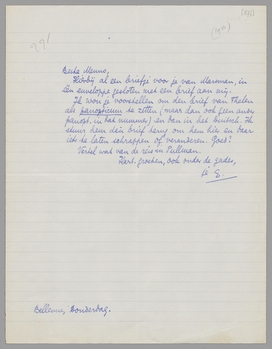 Beste Menno,
Hierbij al een briefje voor je van Marsman, in
een enveloppe gesloten met een brief aan mij.
Ik wou je voorstellen om den brief van Thelen
als panopticum te zetten (maar dan ook geen ander
panopt. in dat nummer) en dan in het Duitsch. Ik
stuur hem dan brief terug om hem hier en daar
iets te laten schrappen of veranderen. Goed?
Vertel wat van de reis in Pullman.
Hart. groeten, ook onder de gades,
je E.
Bellevue, Donderdag.